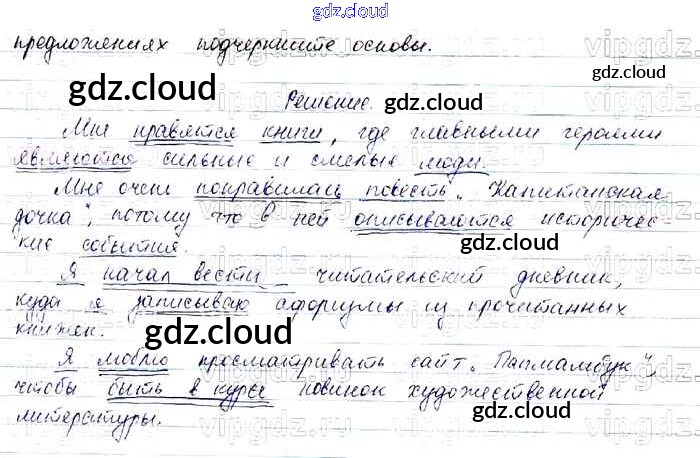 gdz.cloud
предложениях подчеркните основы.
gdz.cloud
gdz.cloud
Решение.
gdz.cloud
Мне нравятся книги, где главными героями
являются сильные и смелые люди.
Мне очен понравилась повесть „Капитанская
дочка", потому что в ней описываются историчес-
кие события.
gdz.cloud
Я начал вести читательский дневник,
куда я записываю афоризмы из прочитанных
книжек.
gdz.cloud
gdz.cloud
Я люблю просматривать сайт „Папмамбук",
чтобы быть в курсе новинок художественной
литературы.
gdz.cloud